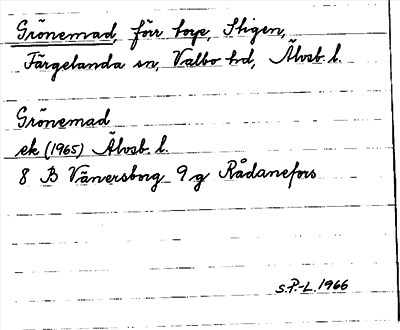 Grönemad, förr torp, Stigen,
Färgelanda sn, Valbo hd, Älvsb. l.
Grönemad
ek (1965) Älvsb. l.
8 B Vänersborg 9 g Rådanefors
S.P.-L. 1966